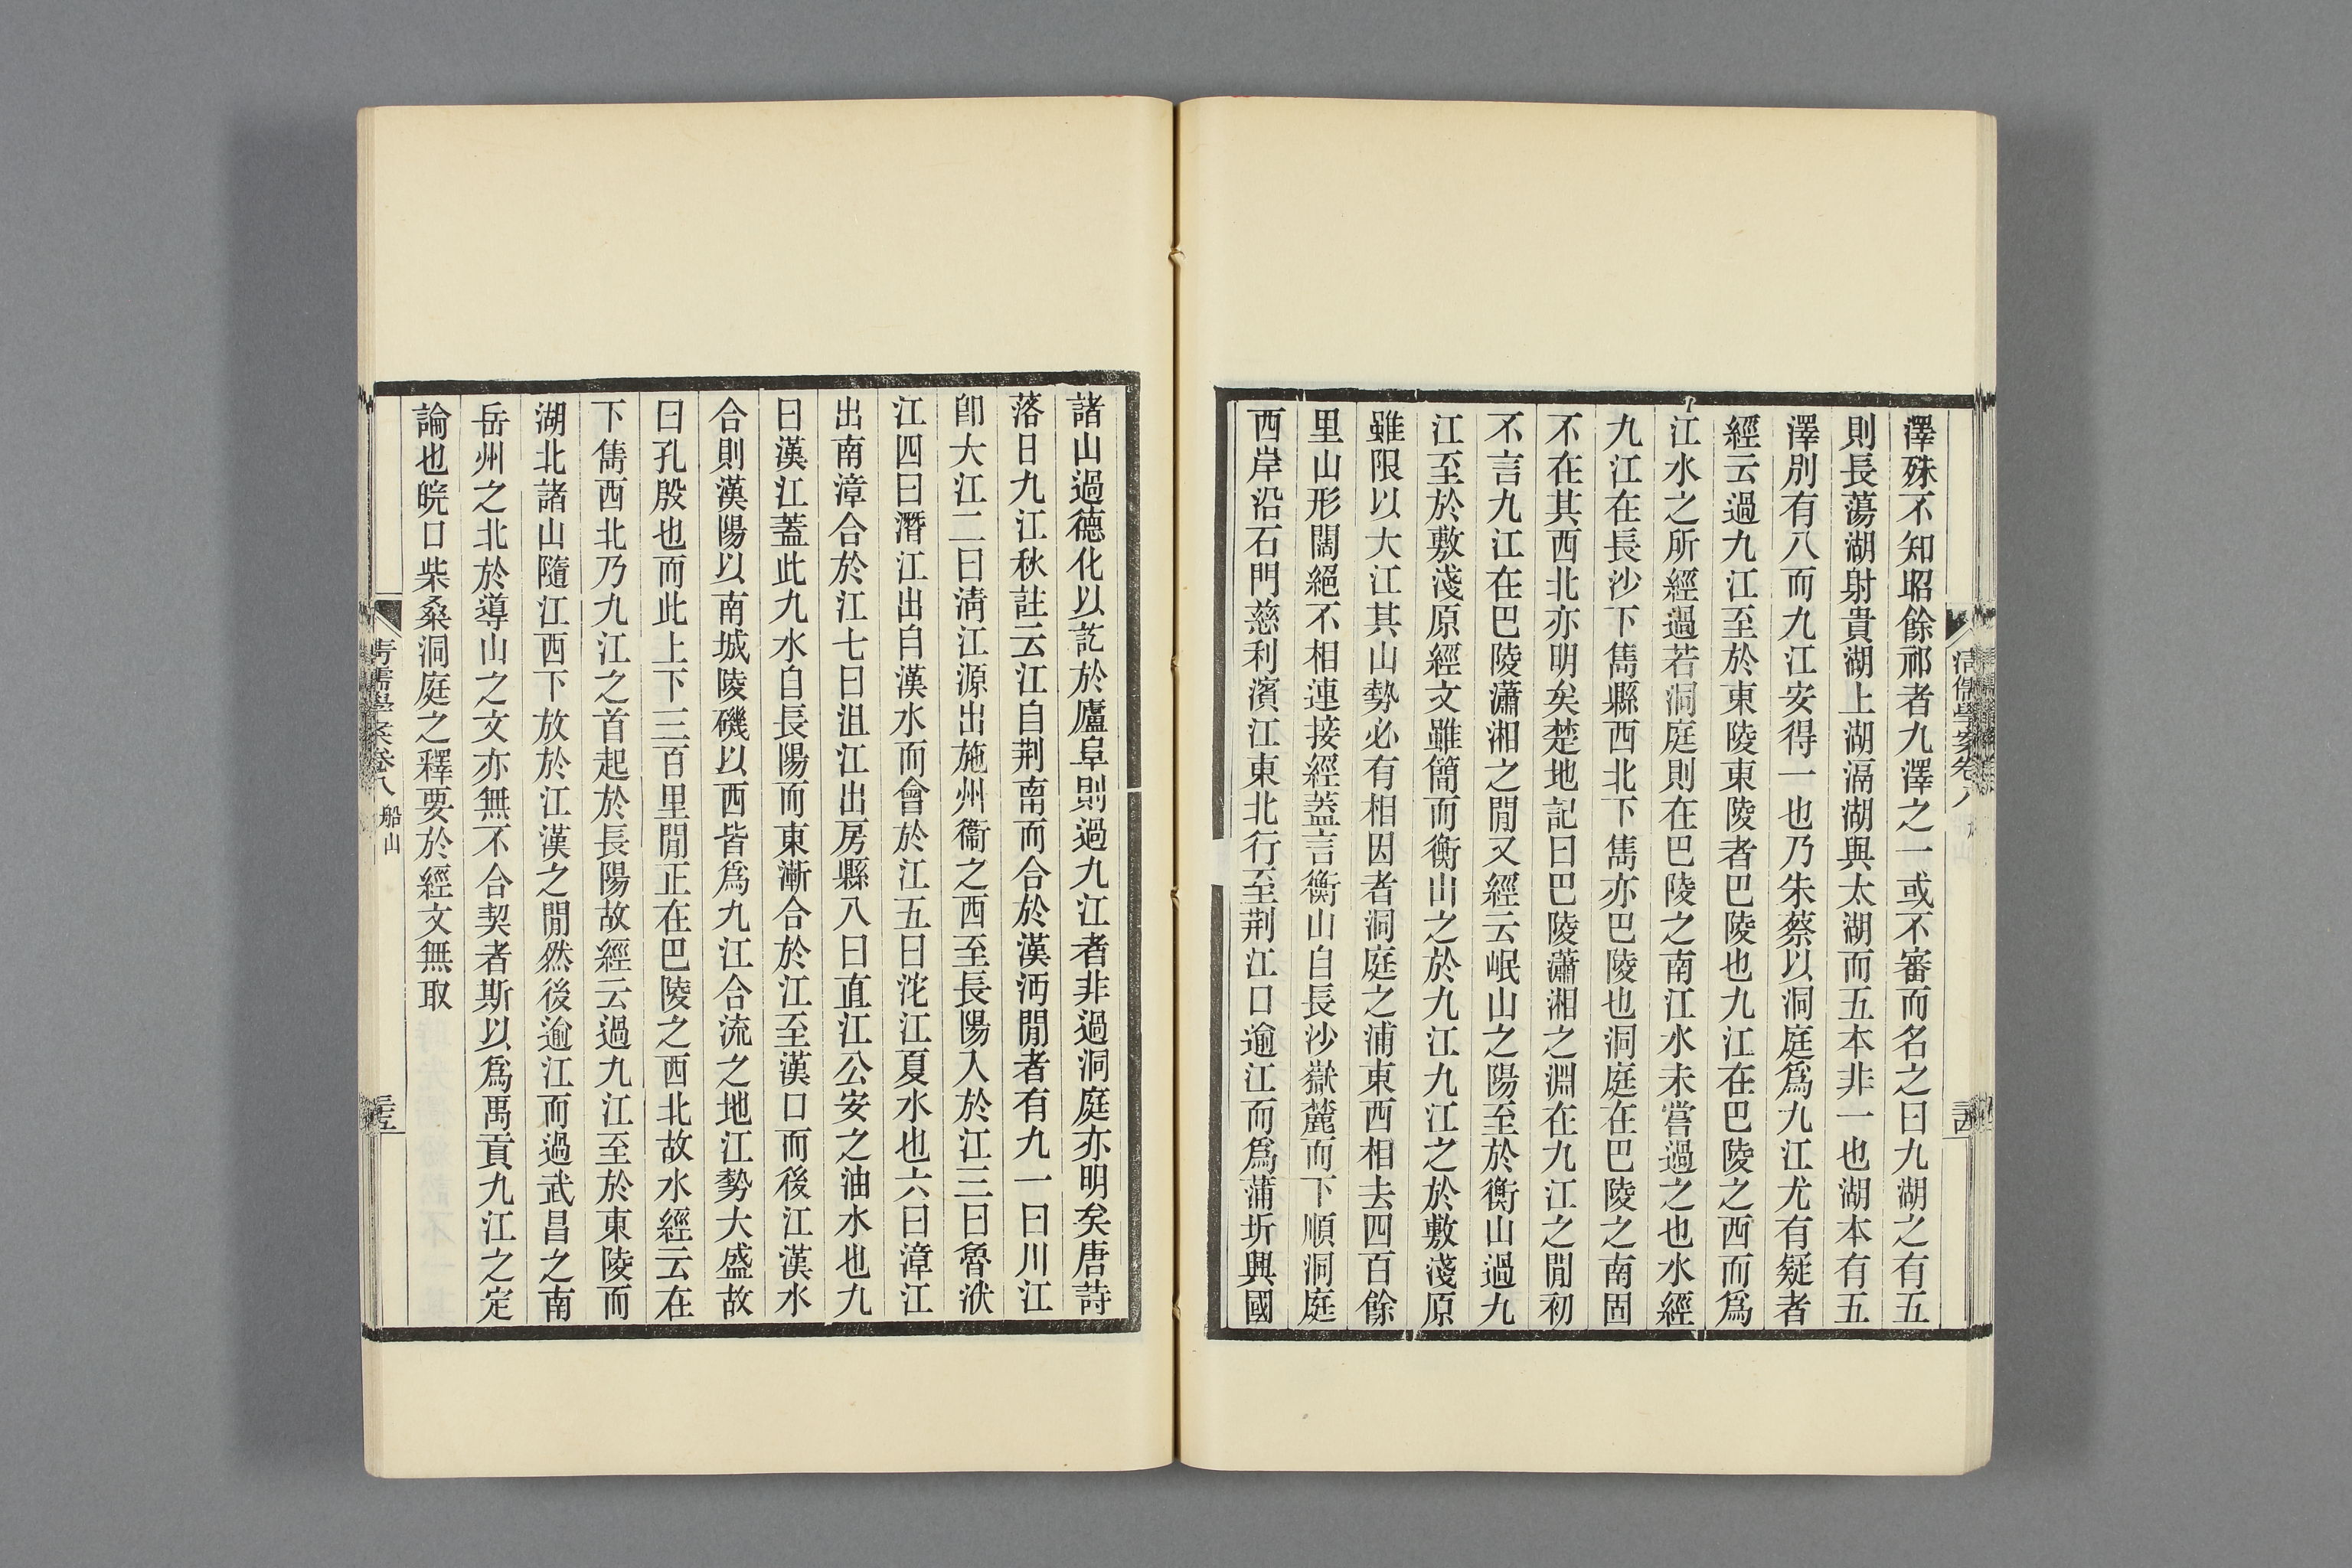 澤殊不知昭餘祁者九澤之一或不審而名之曰九湖之有五
則長蕩湖射貴湖上湖滆湖與太湖而五本非一也湖本有五
澤別有八而九江安得一也乃朱蔡以洞庭爲九江尤有疑者
經云過九江至於東陵東陵者巴陵也九江在巴陵之西而爲
江水之所經過若洞庭則在巴陵之南江水未嘗過之也水經
九江在長沙下雋縣西北下雋亦巴陵也洞庭在巴陵之南固
不在其西北亦明矣楚地記曰巴陵瀟湘之淵在九江之閒初
不言九江在巴陵瀟湘之閒又經云岷山之陽至於衡山過九
江至於敷淺原經文雖簡而衡山之於九江九江之於敷淺原
雖限以大江其山勢必有相因者洞庭之浦東西相去四百餘
里山形闊絕不相連接經蓋言衡山自長沙嶽麓而下順洞庭
西岸沿石門慈利濱江東北行至荆江口逾江而爲蒲圻興國
清儒學案卷八
三西
諸山過德化以訖於廬阜則過九江者非過洞庭亦明矣唐詩
落日九江秋註云江自荆南而合於漢沔閒者有九一曰川江
卽大江二曰淸江源出施州衞之西至長陽入於江三曰魯洑
江四曰潛江出自漢水而會於江五曰沱江夏水也六曰漳江
出南漳合於江七曰沮江出房縣八曰直江公安之油水也九
曰漢江蓋此九水自長陽而東漸合於江至漢口而後江漢水
合則漢陽以南城陵磯以西皆爲九江合流之地江勢大盛故
曰孔殷也而此上下三百里閒正在巴陵之西北故水經云在
下雋西北乃九江之首起於長陽故經云過九江至於東陵而
湖北諸山隨江西下放於江漢之閒然後逾江而過武昌之南
岳州之北於導山之文亦無不合契者斯以爲禹貢九江之定
論也皖口柴桑洞庭之釋要於經文無取
清儒學案卷八 船山
三五